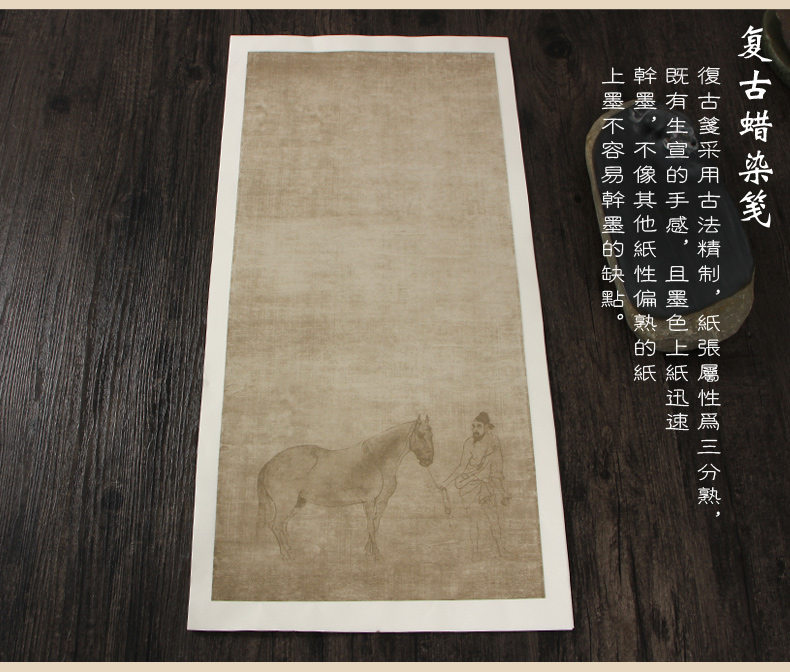 复古蜡染笺
復古箋采用古法精制，紙張屬性爲三分熟，
既有生宣的手感，且墨色上紙迅速
幹墨，不像其他紙性偏熟的紙
上墨不容易幹墨的缺點。